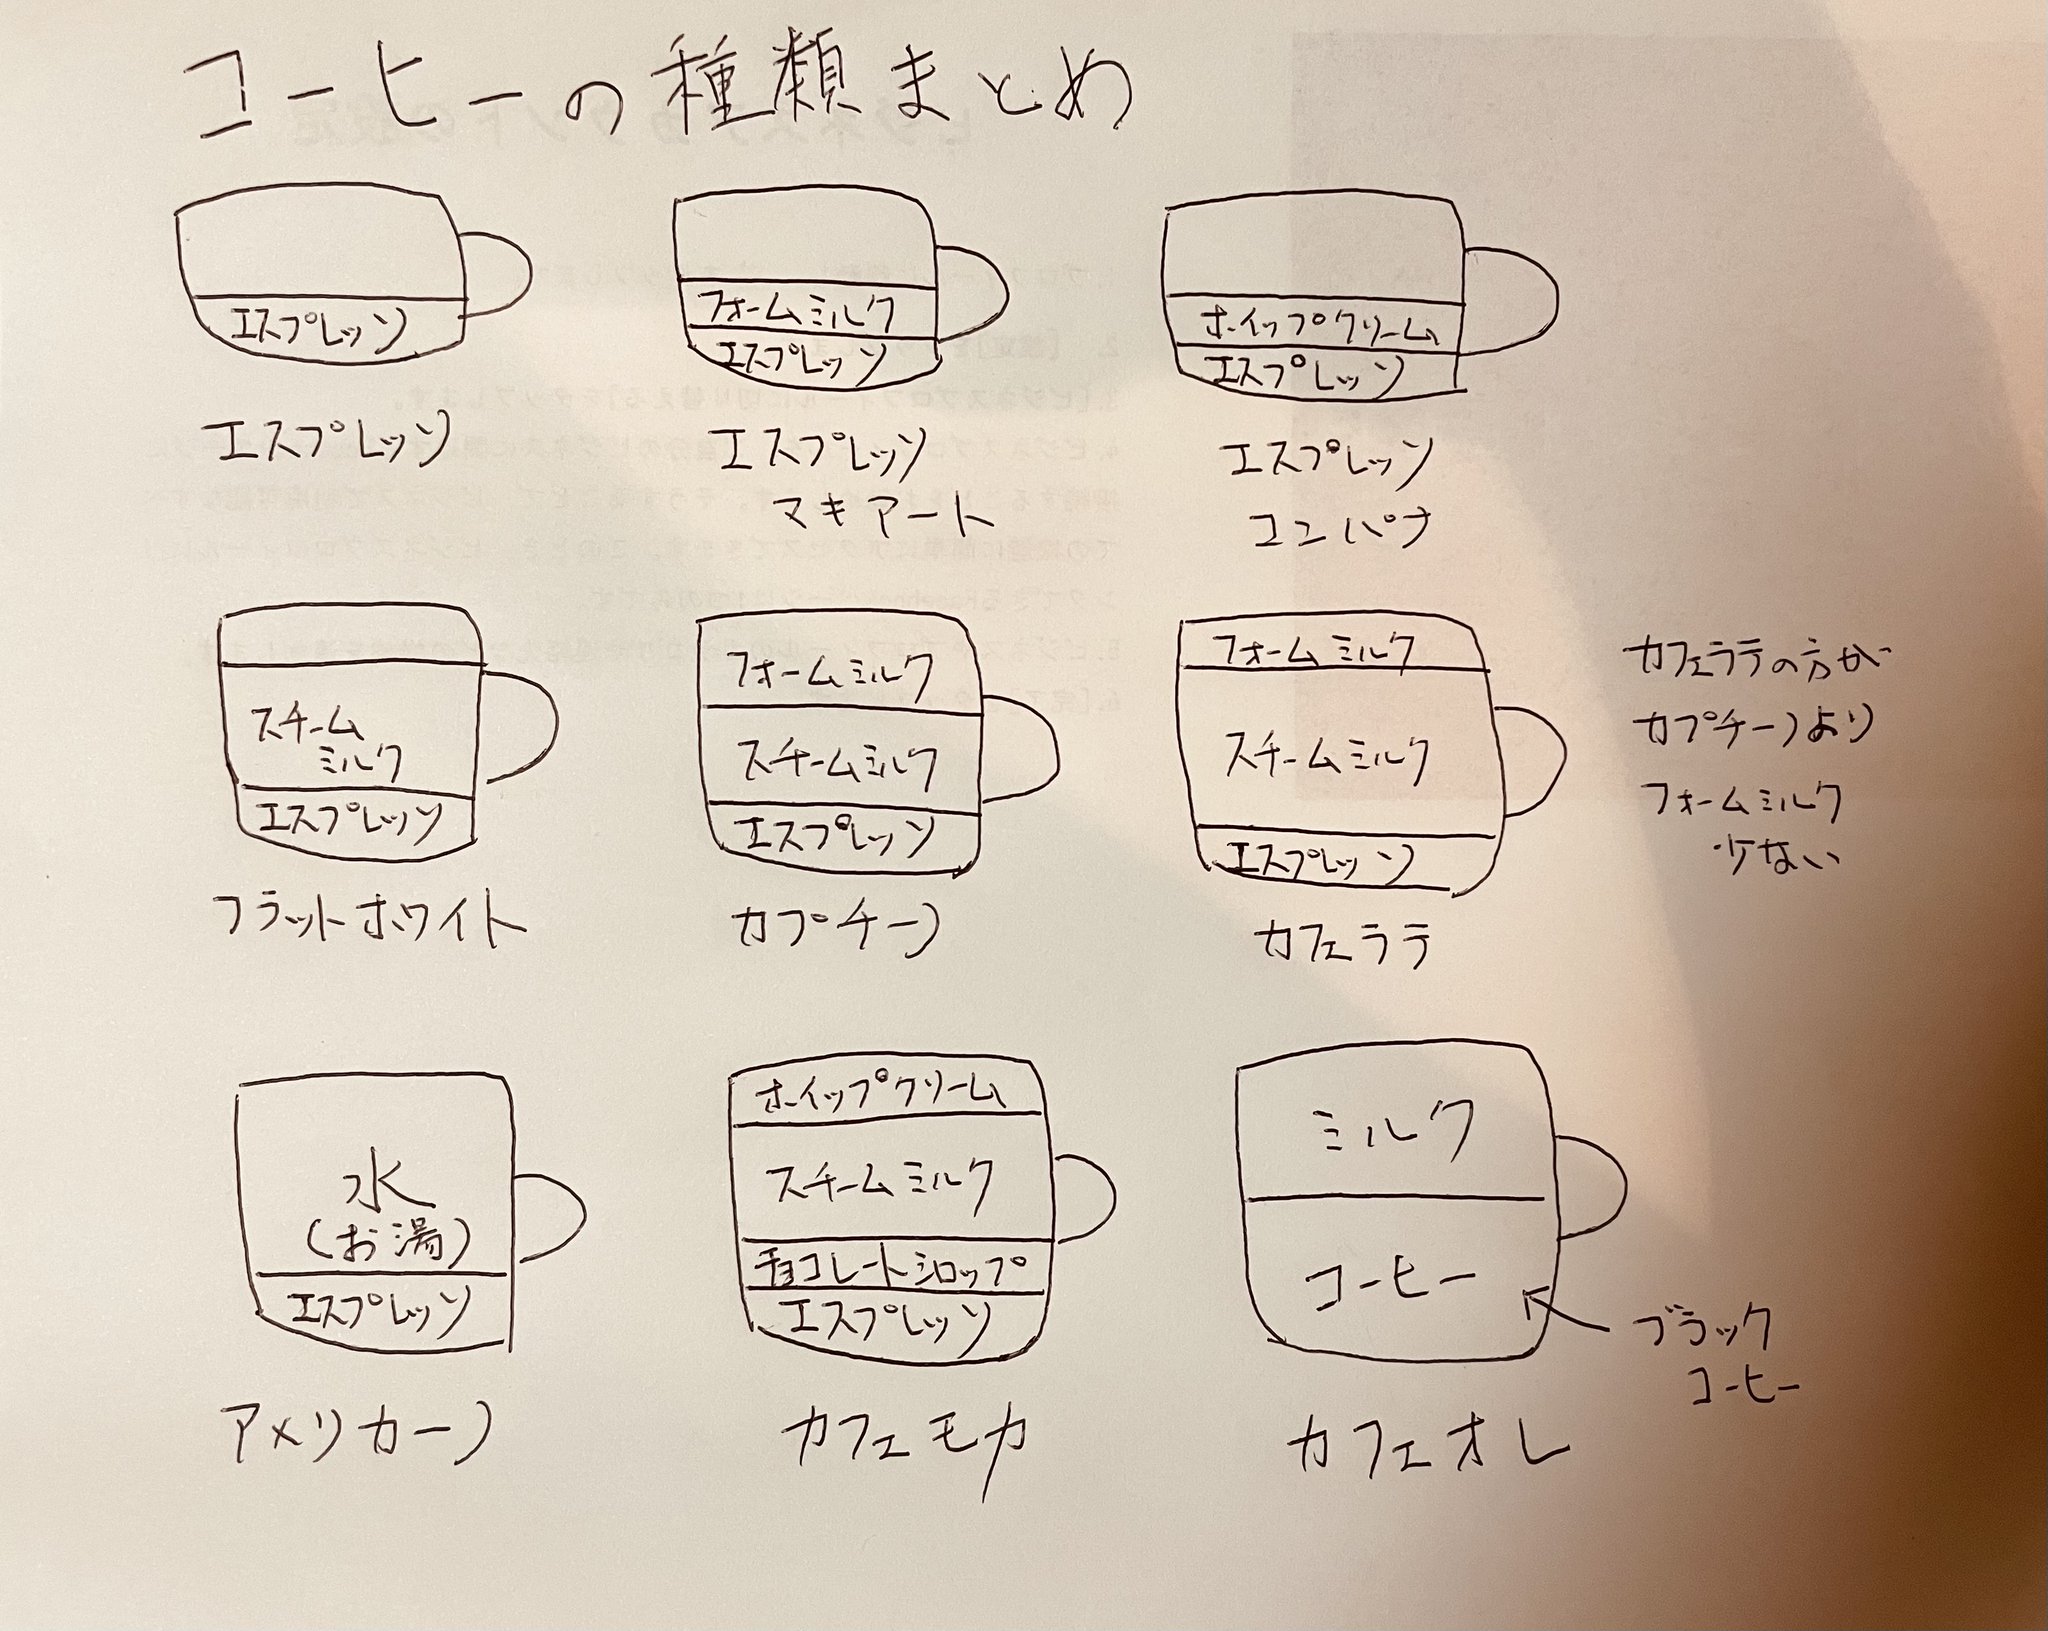 コーヒーの種類まとめ
エスプレッソ
エスプレッソ
フォームミルク
エスプレッソ
エスプレッソ
マキアート
ホイップクリーム
エスプレッソ
エスプレッソ
コンパナ
スチーム
ミルク
エスプレッソ
フラットホワイト
フォームミルク
スチームミルク
エスプレッソ
カプチーノ
フォームミルク
スチームミルク
エスプレッソ
カフェラテ
カフェラテの方が
カプチーノより
フォームミルク
少ない
水
(お湯)
エスプレッソ
アメリカーノ
ホイップクリーム
スチームミルク
チョコレートシロップ
エスプレッソ
カフェモカ
ミルク
コーヒー
カフェオレ
ブラック
コーヒー